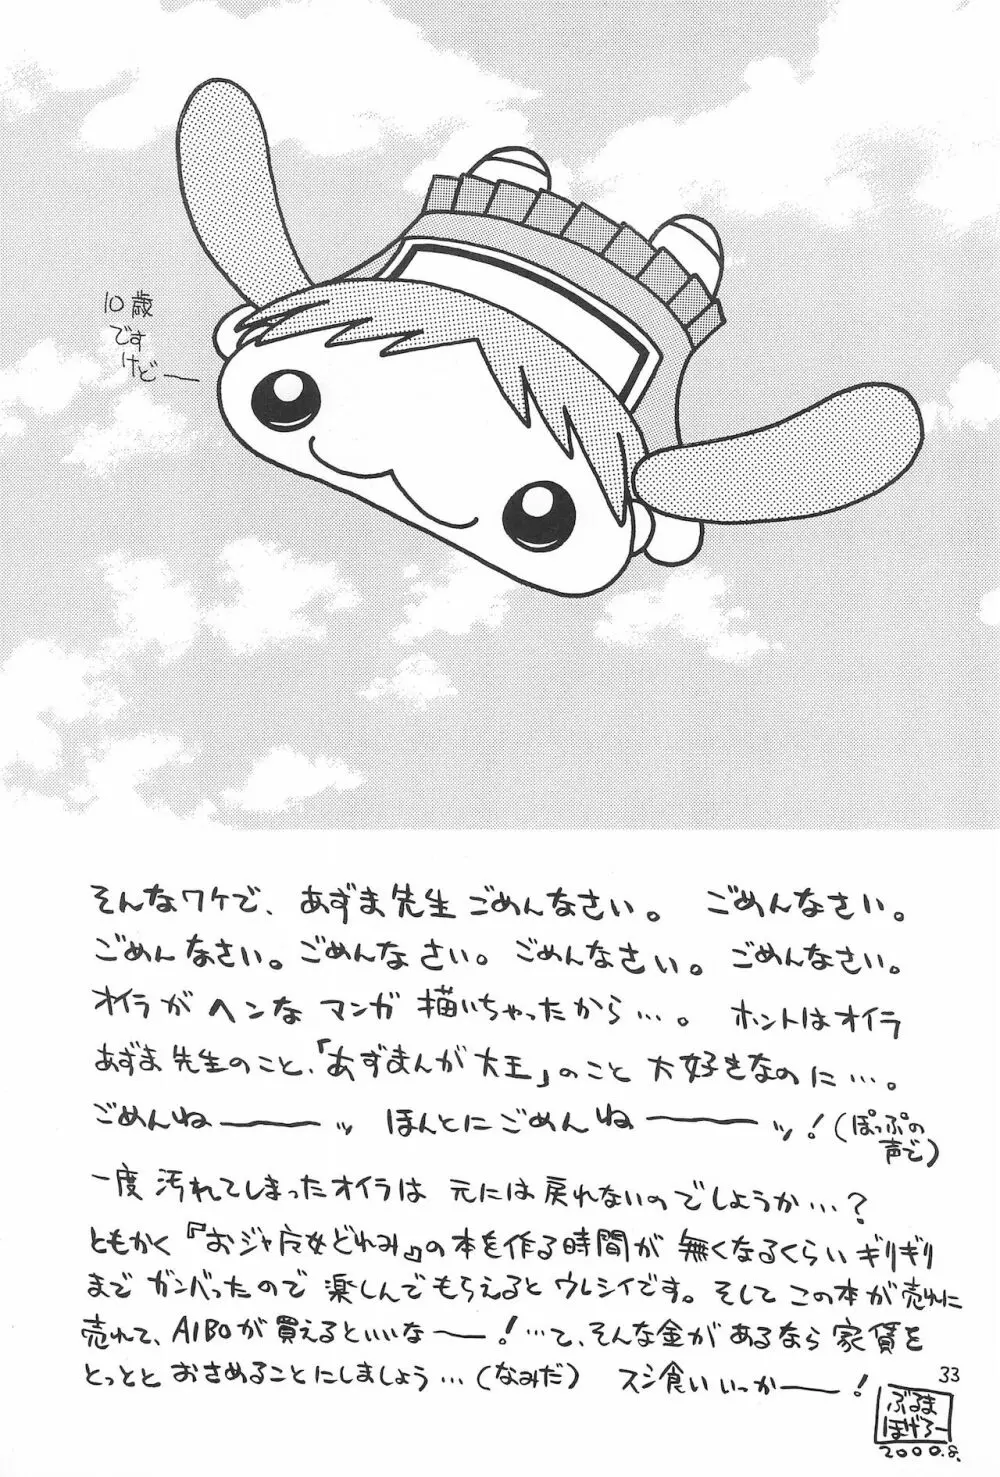 10歳
です
けどー
そんなワケで、あずま先生ごめんなさい。 ごめんなさい。
ごめんなさい。ごめんなさい。ごめんなさい。ごめんなさい。
オイラがヘンなマンガ描いちゃったから…。 ホントはオイラ
あずま先生のこと、「あずまんが大王」のこと大好きなのに…。
ごめんねーーッ ほんとにごめんねーーッ!(ぽっぷの
声で)
一度汚れてしまったオイラは元には戻れないのでしょうか…?
ともかく『おジャ魔女どれみ』の本を作る時間が無くなるくらいギリギリ
までガンバったので楽しんでもらえるとウレシイです。そしてこの本が売れに
売れて、AIBOが買えるといいなー!…て、そんな金があるなら家賃を
とっととおさめることにしましょう…(なみだ) スシ食いいっかー!
33
ぶるま
ほげろー
2000.8.